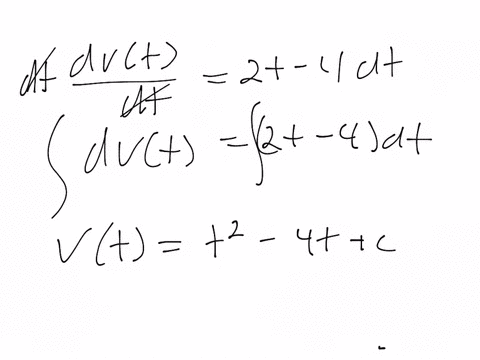 dt dv(t)/dt = 2t - 4 dt
∫ dv(t) = ∫(2t - 4) dt
v(t) = t² - 4t + c